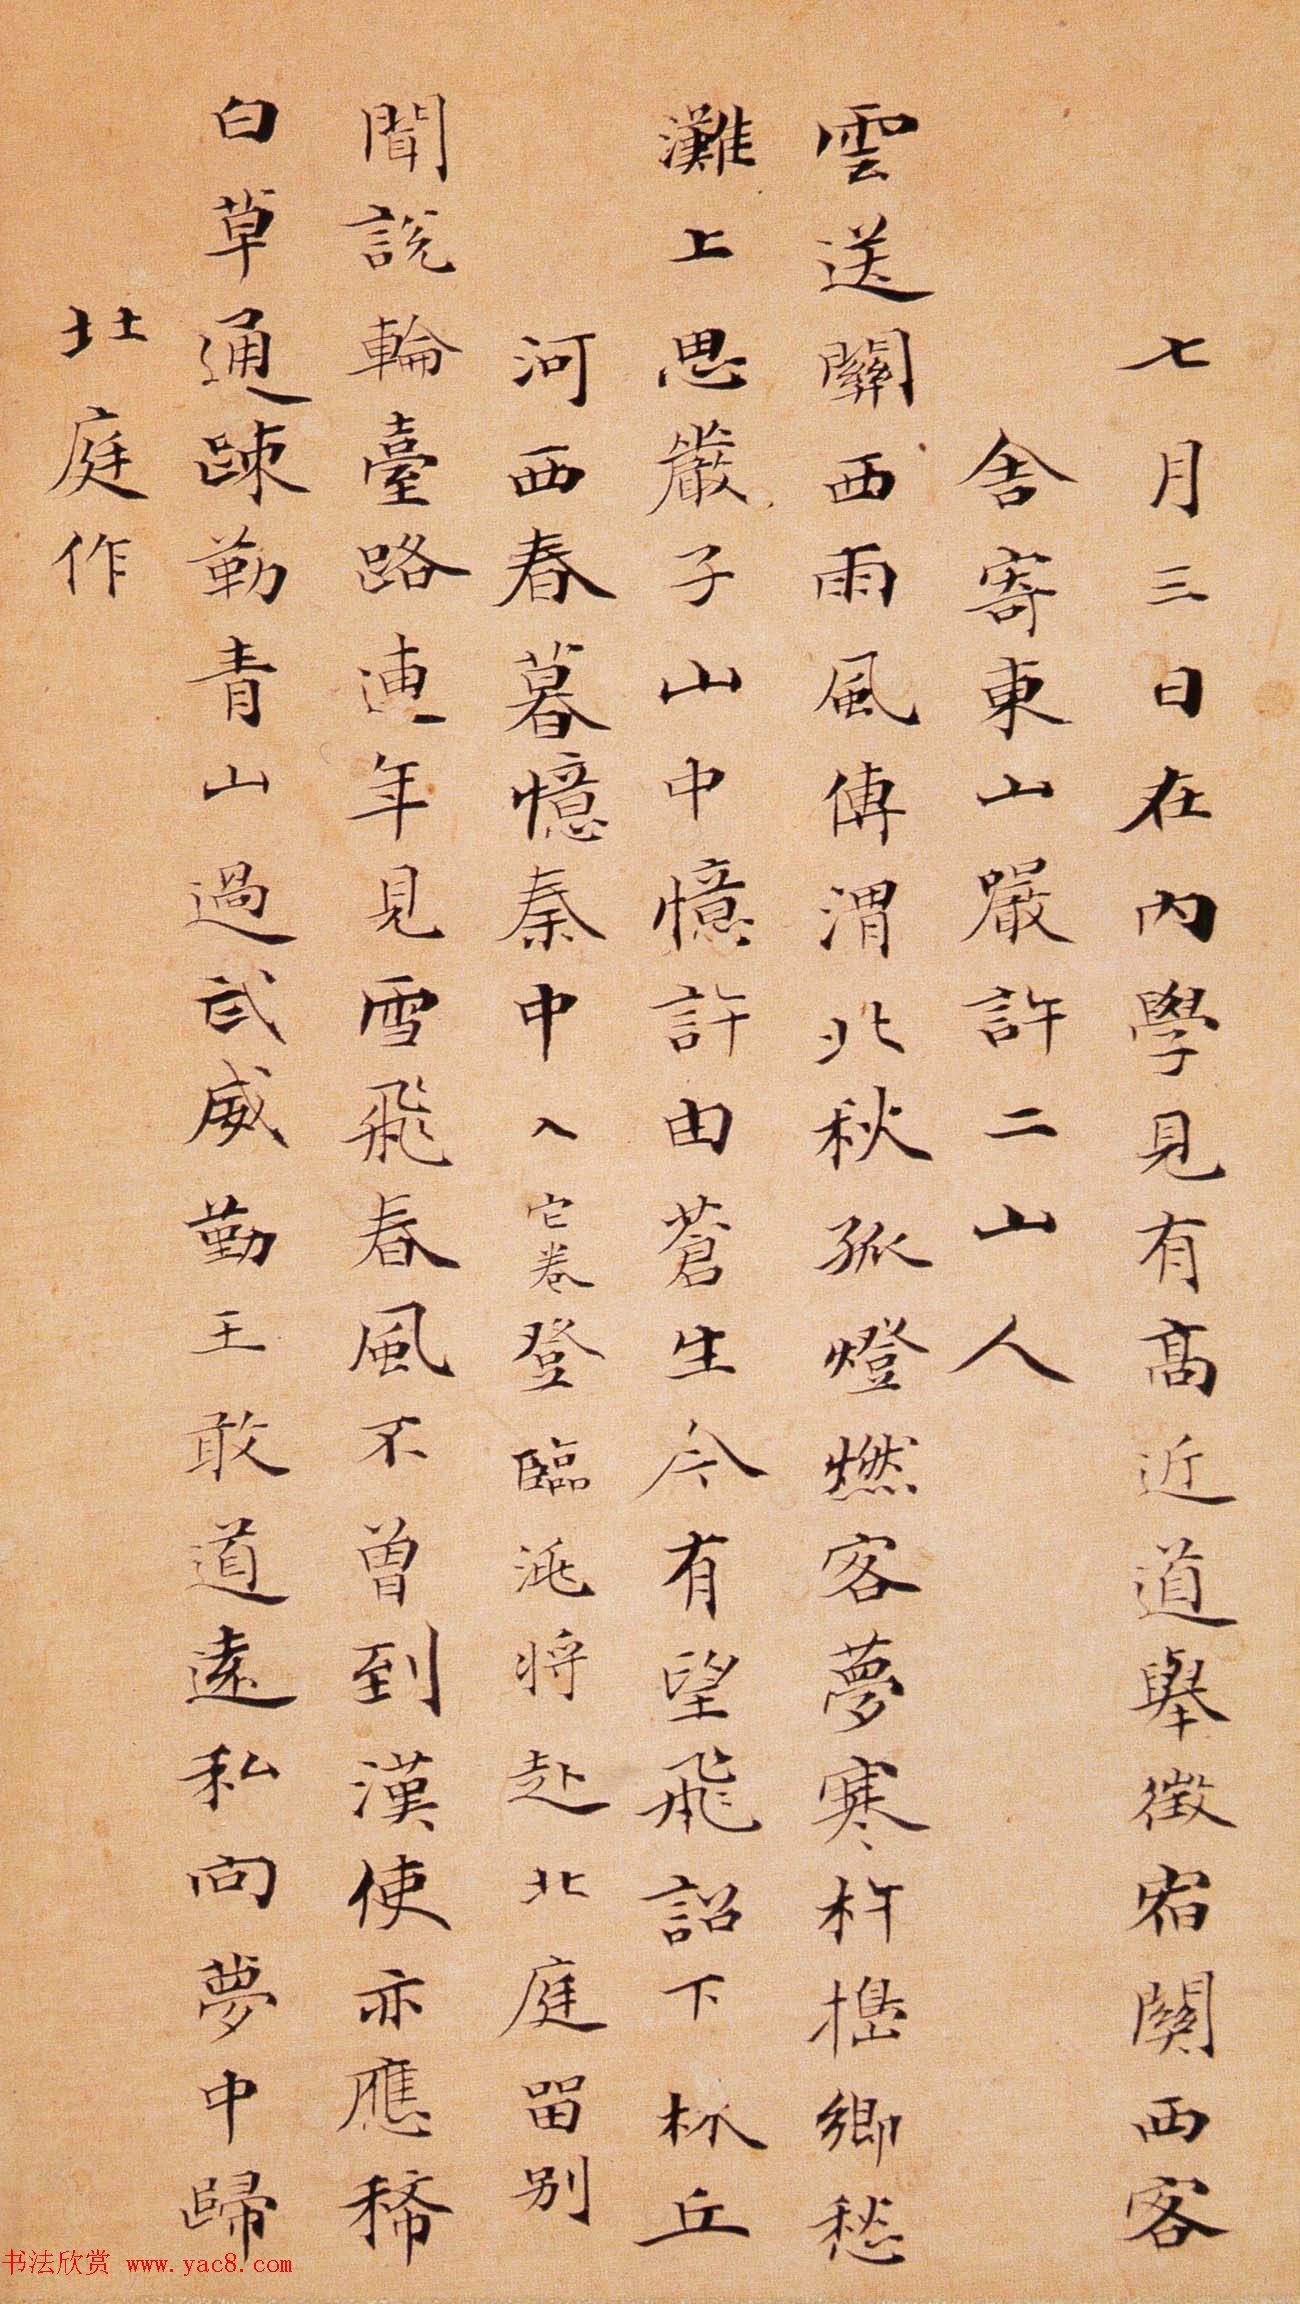 七月三日在內學見有高近道舉徵宿關西客
舍寄東山嚴許二山人
雲送關西雨風傳渭北秋孤燈燃客夢寒杵搗鄉愁
灘上思嚴子山中憶許由蒼生今有望飛詔下林丘
河西春暮憶秦中入它卷登臨洮將赴北庭留別
聞說輪臺路連年見雪飛春風不曾到漢使亦應稀
白草通疎勒青山過武威勤王敢道遠私向夢中歸
北庭作
书法欣赏 www.yac8.com